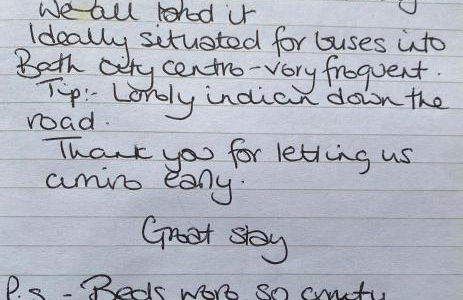 We all loved it
Ideally situated for buses into
Bath city centre - very frequent.
Tip:- Lovely indian down the
road.
Thank you for letting us
arrive early.
Great stay
P.s - Beds were so comfy